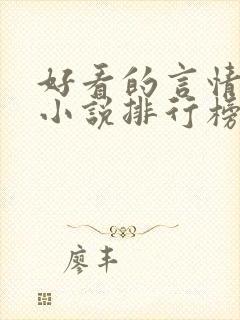 好看的言情
小说排行榜
廖丰